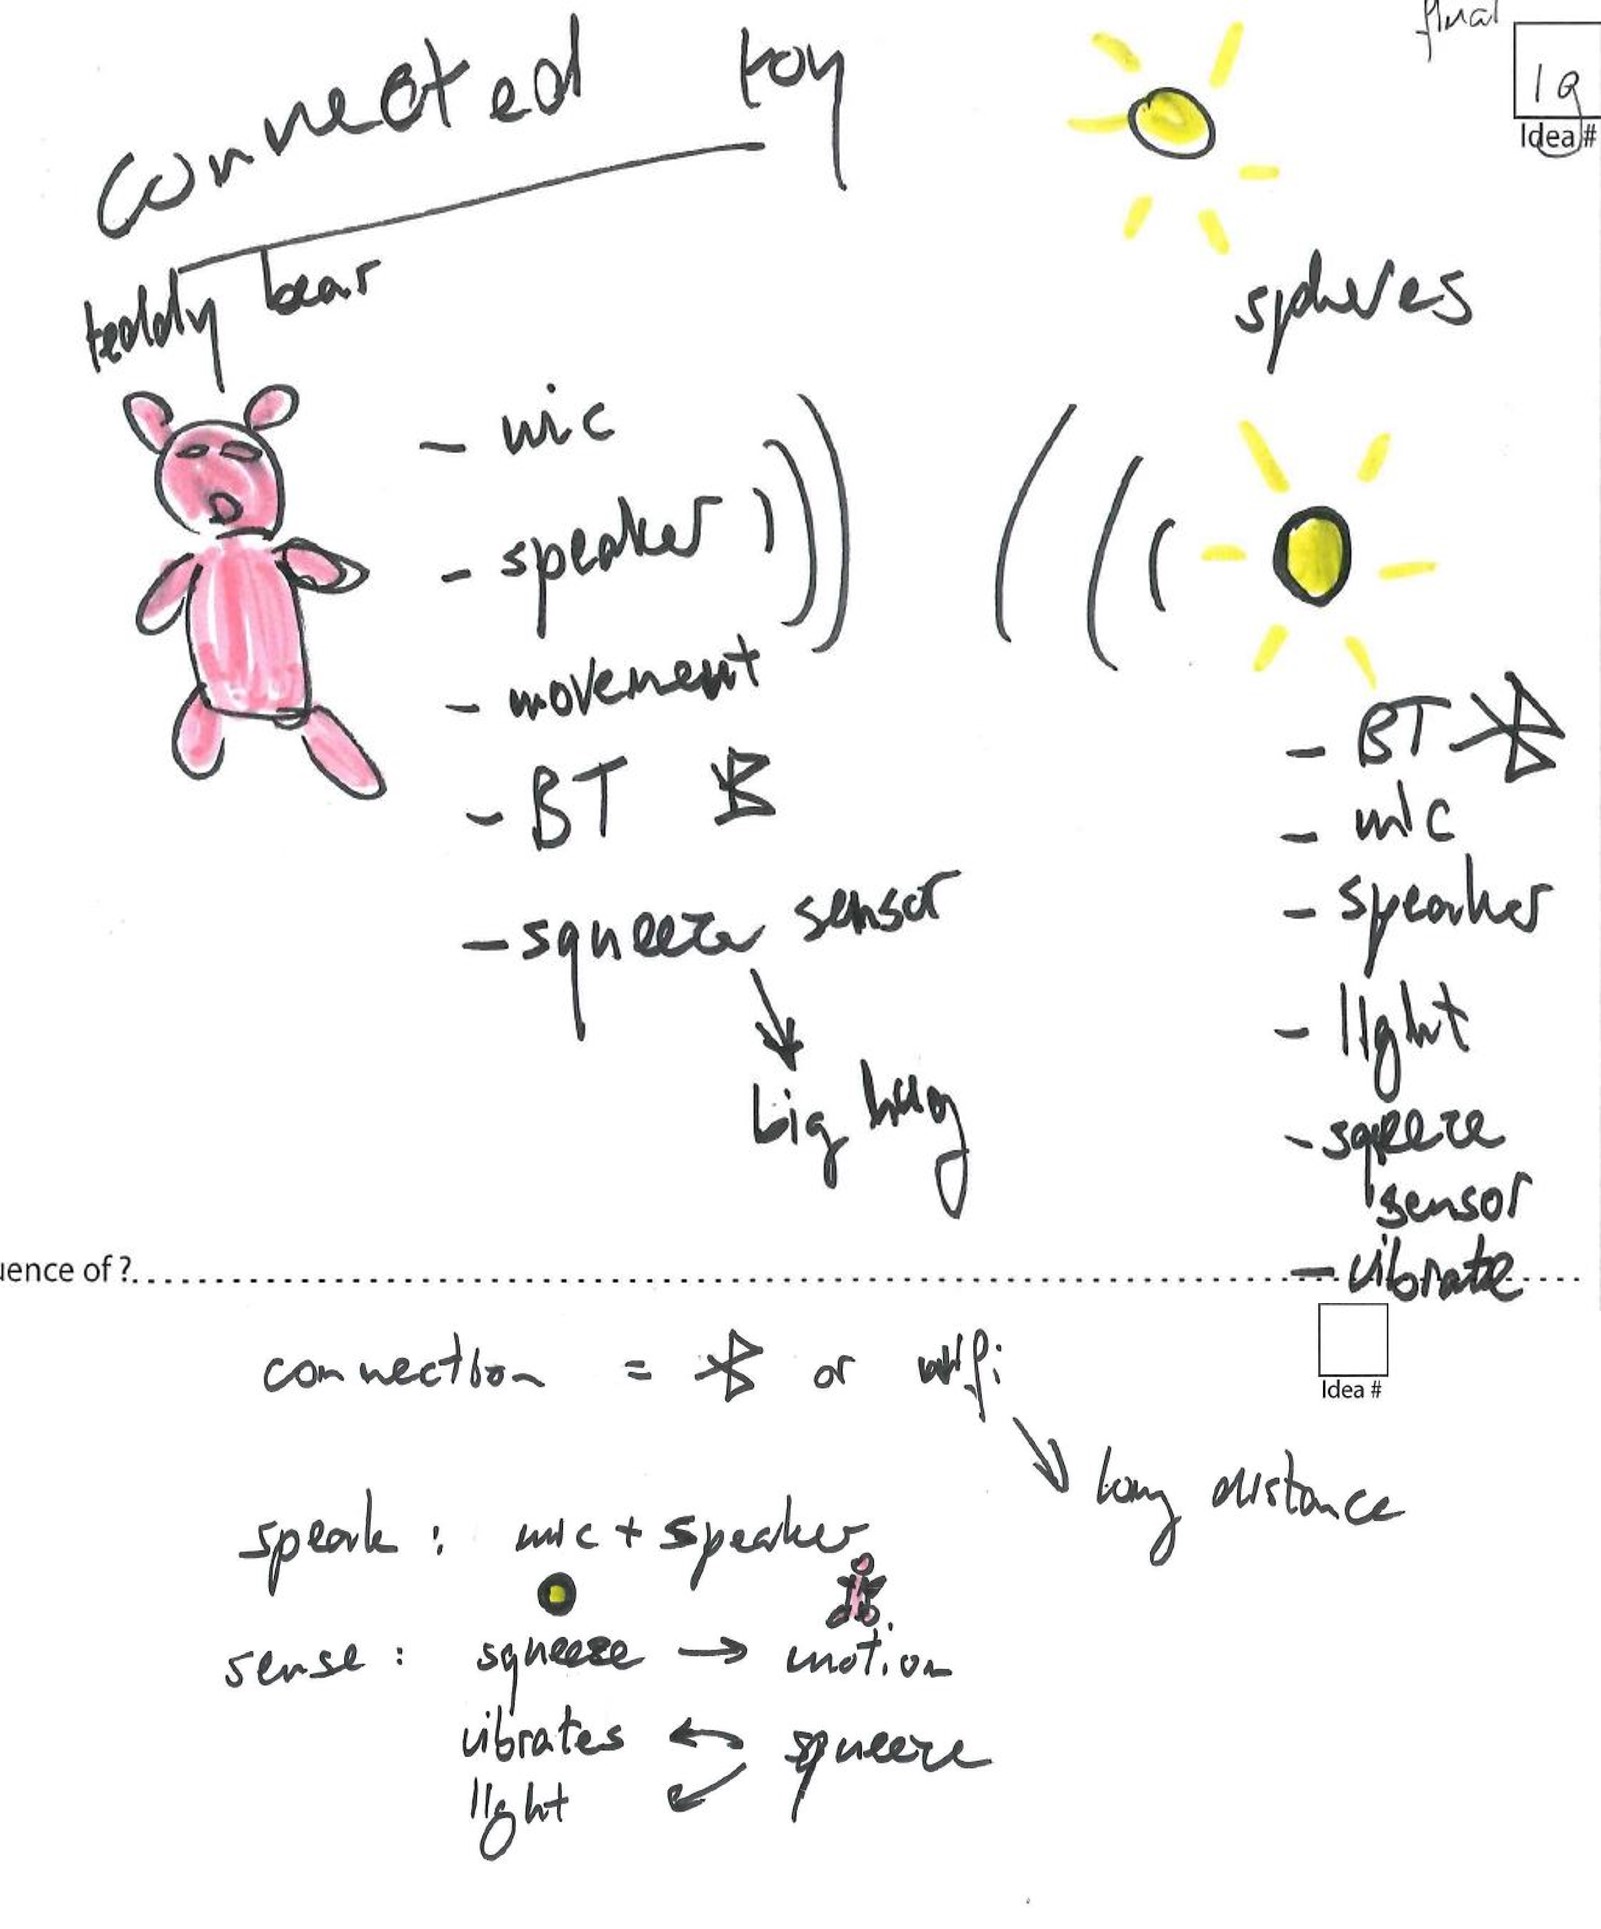 final
connected toy
19
Idea #
teddy bear
spheres
- mic
- speaker
- movement
- BT
- squeeze sensor
big hug
- BT
- mic
- speaker
- light
- sqeeze
sensor
- vibrate
uence of ?
Idea #
connection = or wifi
long distance
speak : mic + speaker
sense : squeeze → motion
vibrates ← squeeze
light